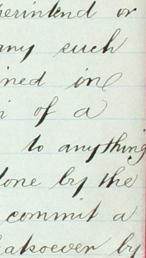 perintend or
any such
ined in
of a
to anything
done by the
commit a
hatsoever by